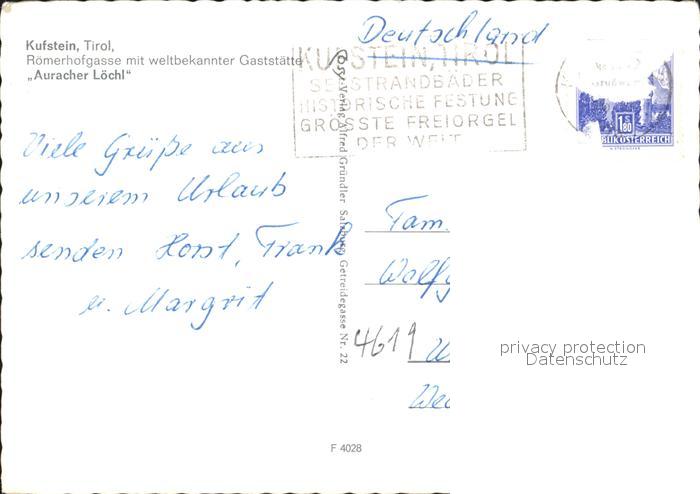 Kufstein, Tirol,
Römerhofgasse mit weltbekannter Gaststätte
„Auracher Löchl"
Deutschland
KUFSTEIN, TIROL
SEESTRANDBÄDER
HISTORISCHE FESTUNG
GRÖSSTE FREIORGEL
DER WELT
1 S
80
REPUBLIK ÖSTERREICH
Viele Grüße aus
unserem Urlaub
senden Horst, Frank
u. Margrit
Cosy-Verlag Alfred Gründler Salzburg Getreidegasse Nr. 22
Fam.
Wolfg
4619
privacy protection
Datenschutz
F 4028